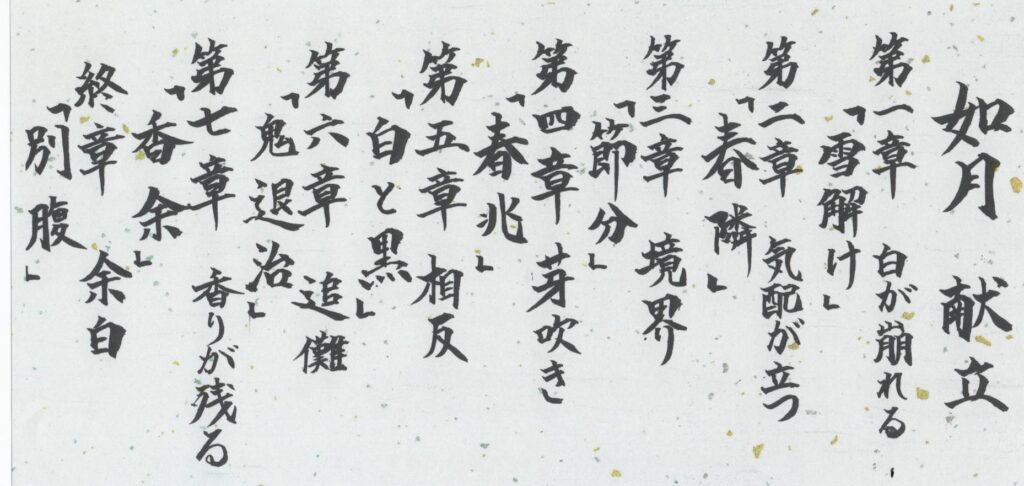 如月 献立
第一章 白が崩れる
「雪解け」
第二章 気配が立つ
「春隣」
第三章 境界
「節分」
第四章 芽吹き
「春兆」
第五章 相反
「白と黒」
第六章 追儺
「鬼退治」
第七章 香りが残る
「香余」
終章 余白
「別腹」